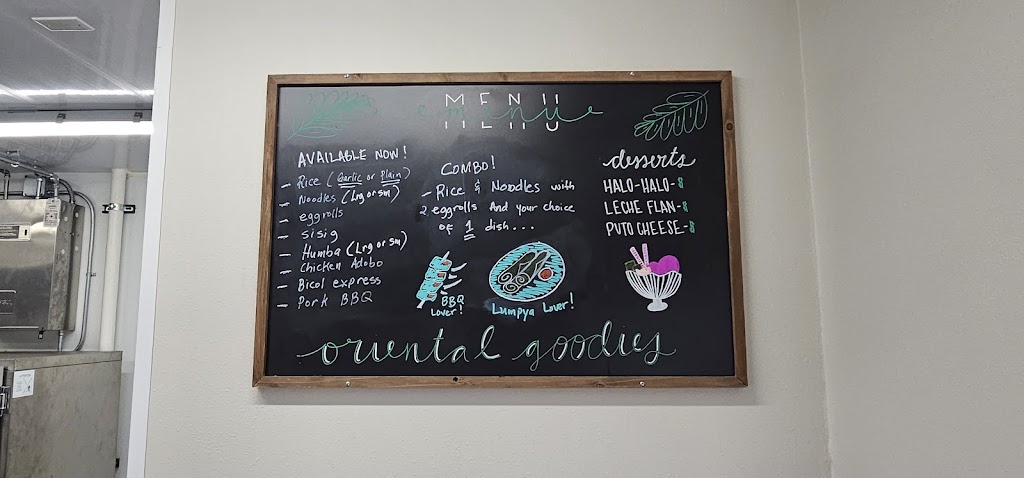 MENU
menu
AVAILABLE NOW!
- Rice (Garlic or Plain)
- Noodles (Lrg or sm)
- eggrolls
- sisig
- Humba (Lrg or sm)
- Chicken Adobo
- Bicol express
- Pork BBQ
COMBO!
- Rice & Noodles with
2 eggrolls And your choice
of 1 dish...
BBQ
Lover!
Lumpya Lover!
desserts
HALO-HALO-$
LECHE FLAN-$
PUTO CHEESE-$
oriental goodies